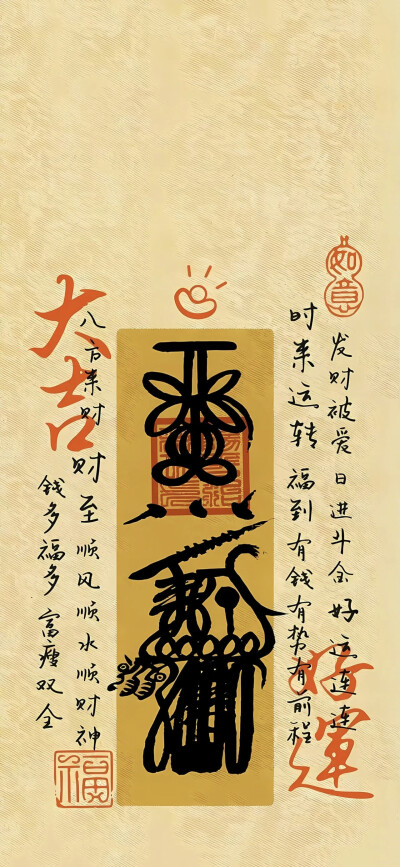 如意
发财被爱日进斗金好运连连
时来运转福到有錢有势有前程
好運
八方来财财至顺风顺水顺财神
大吉
錢多福多富瘦双全
福